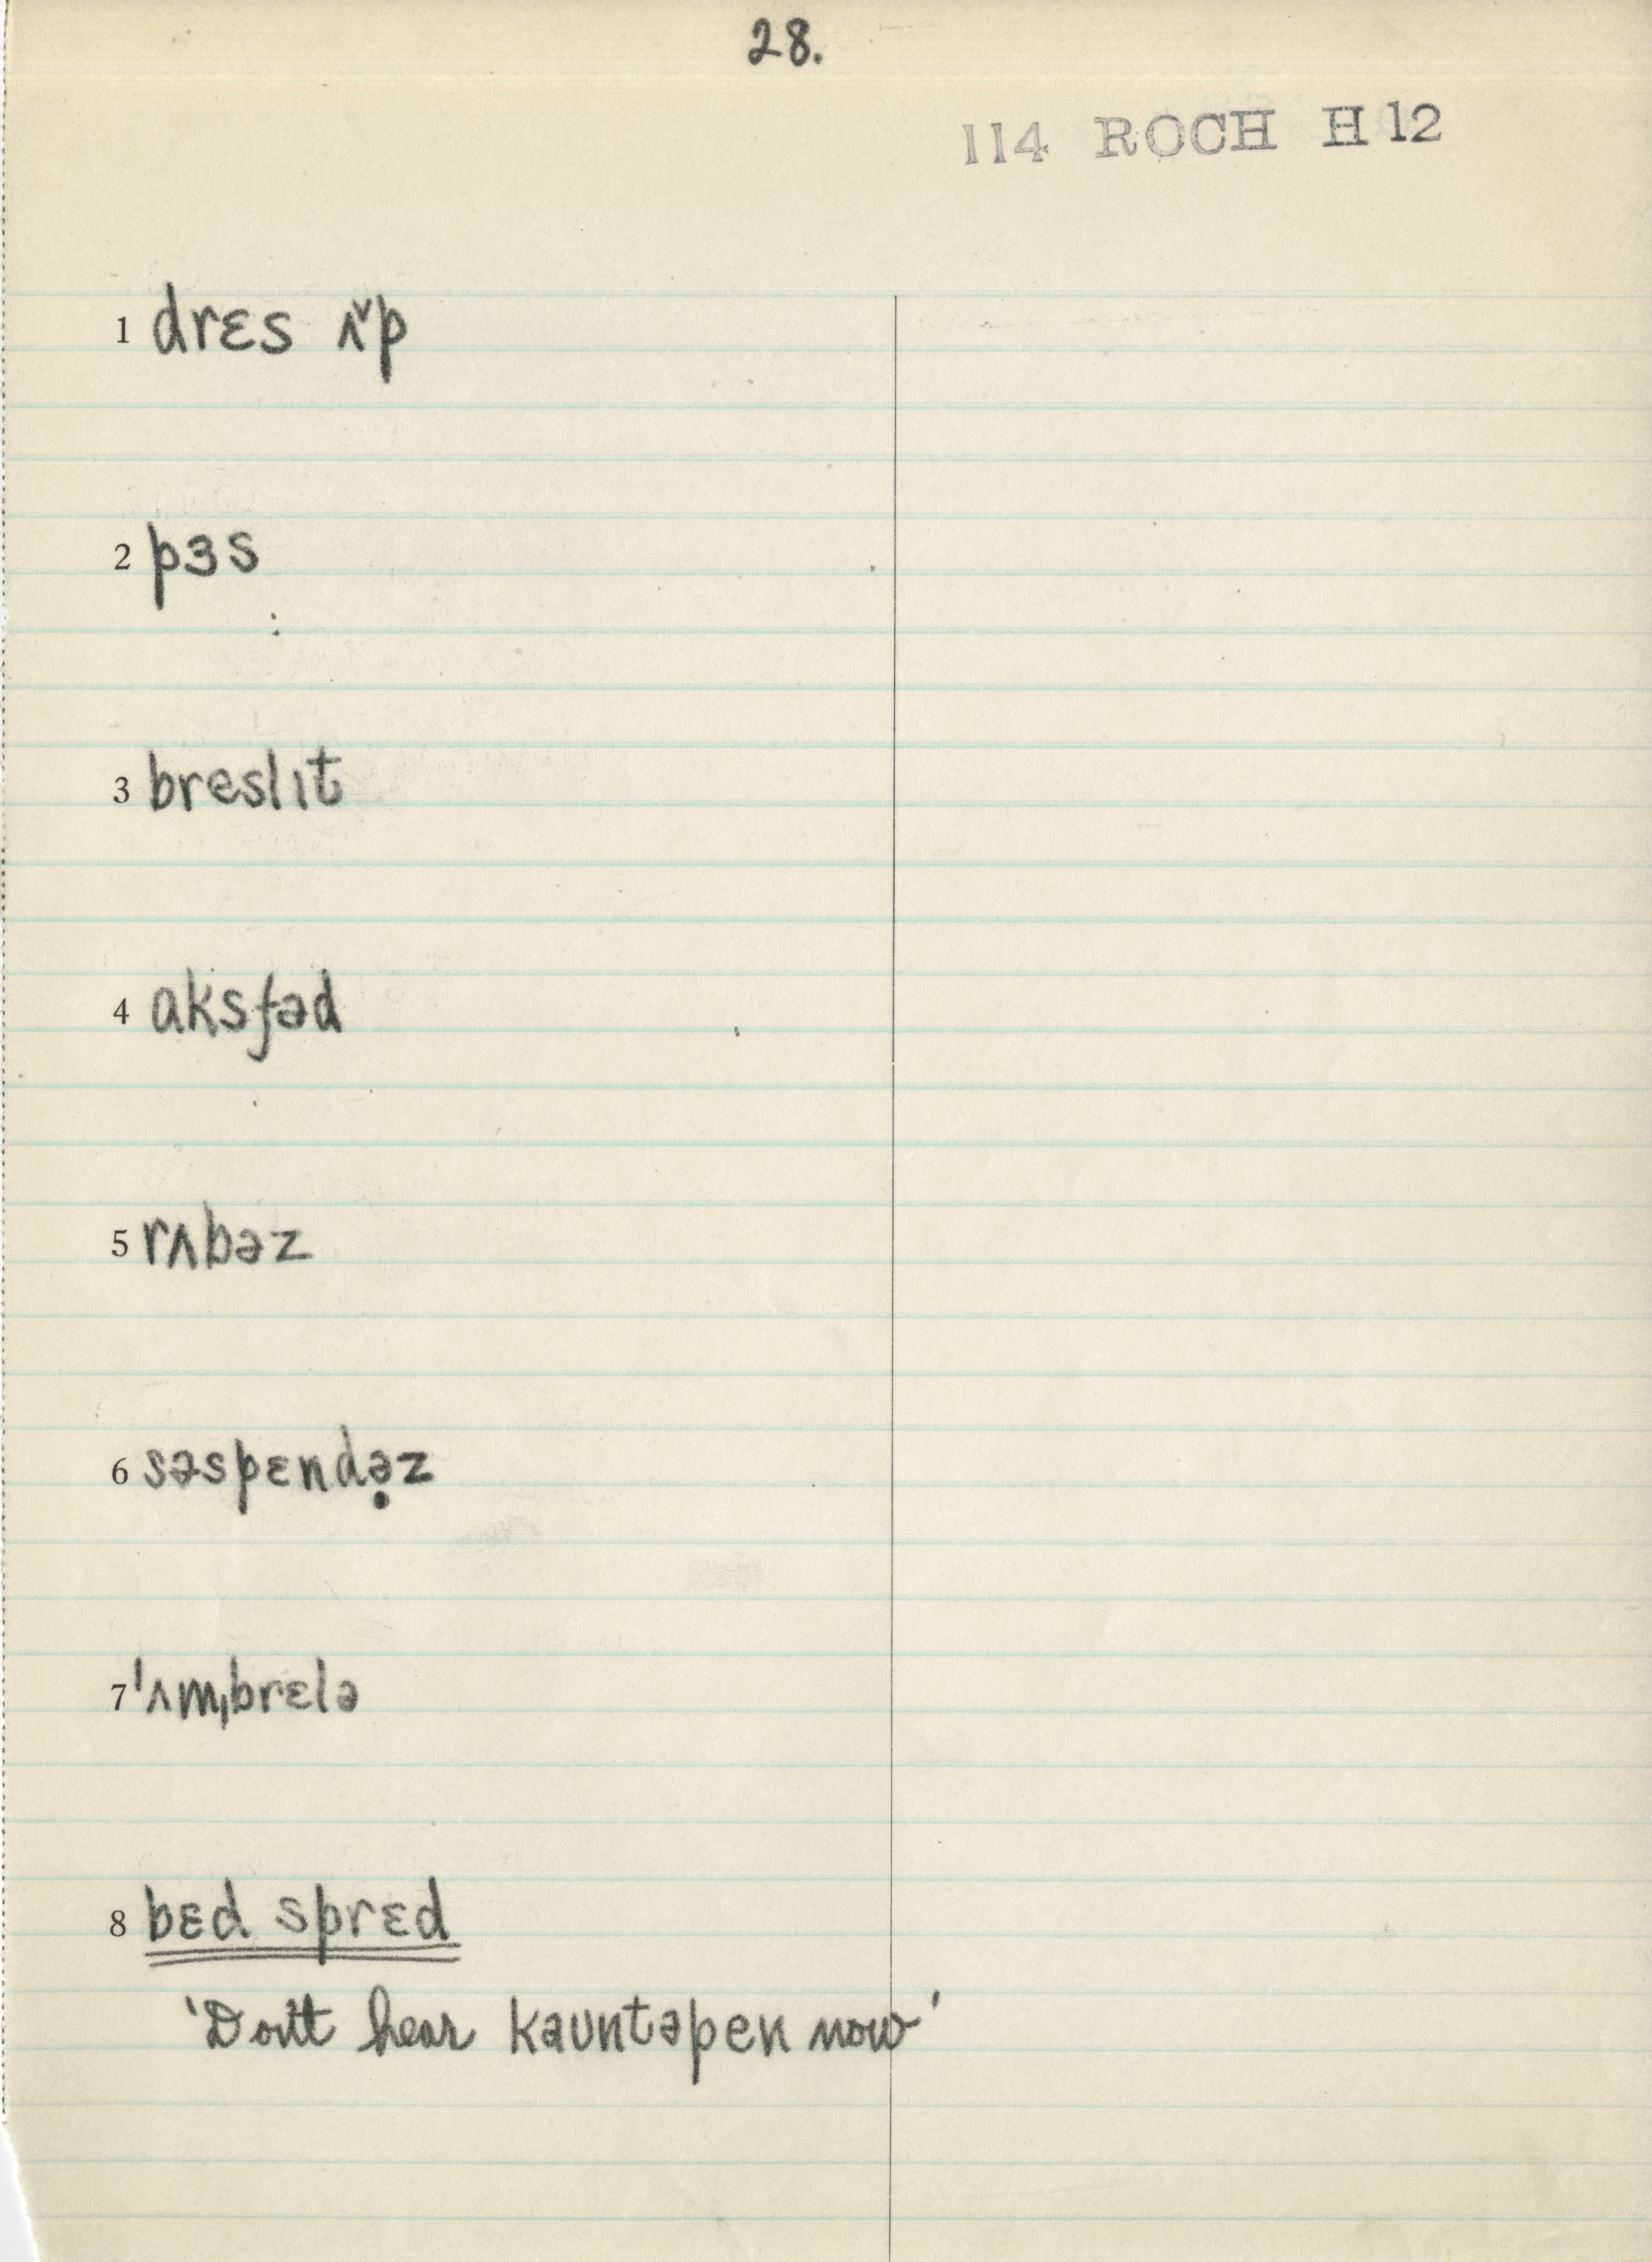 28.
114 ROCH H 12
1 drɛs ʌ˅p
2 pɜs
3 breslɪt
4 aksfəd
5 rʌbəz
6 səspɛndə̣z
7 ˈʌmˌbrɛlə
8 bɛd sprɛd
'Don't hear kauntəpen now'